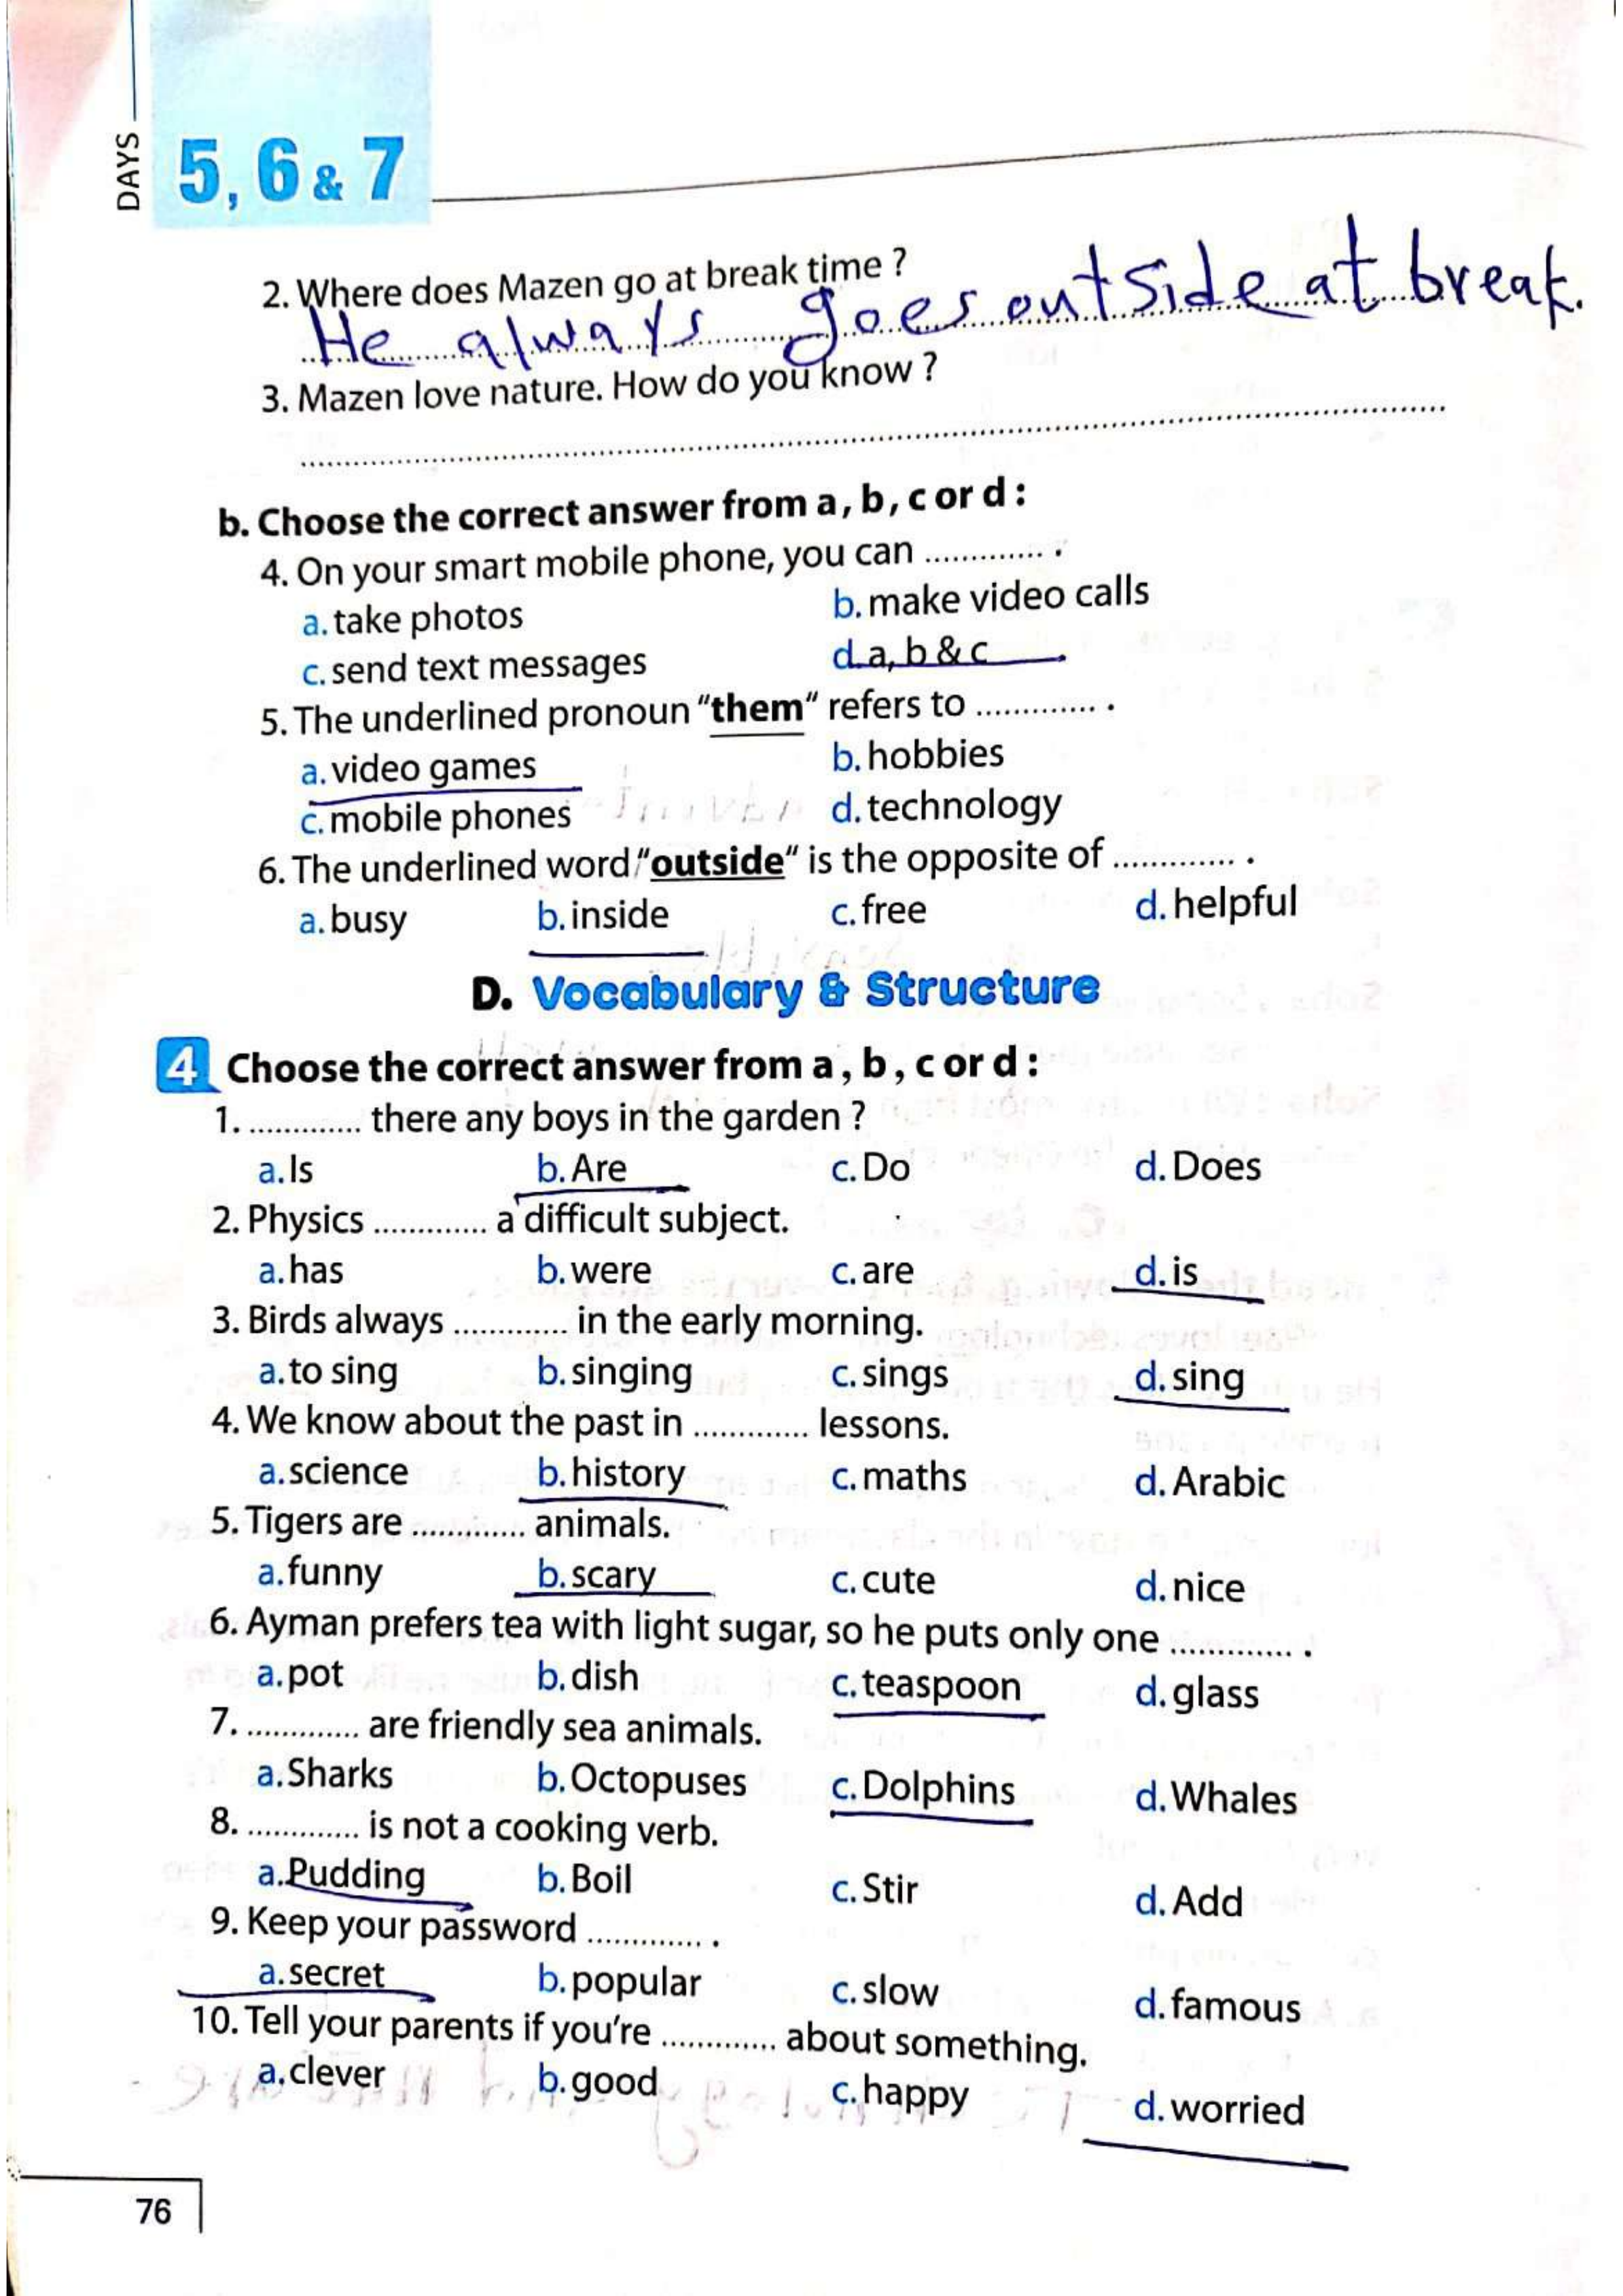 DAYS
5, 6 & 7
2. Where does Mazen go at break time ?
He always goes outside at break.
3. Mazen love nature. How do you know ?
b. Choose the correct answer from a , b , c or d :
4. On your smart mobile phone, you can ............. .
a. take photos b. make video calls
c. send text messages d. a, b & c
5. The underlined pronoun "them" refers to ............. .
a. video games b. hobbies
c. mobile phones d. technology
6. The underlined word "outside" is the opposite of ............. .
a. busy b. inside c. free d. helpful
D. Vocabulary & Structure
4 Choose the correct answer from a , b , c or d :
1. ............. there any boys in the garden ?
a. Is b. Are c. Do d. Does
2. Physics ............. a difficult subject.
a. has b. were c. are d. is
3. Birds always ............. in the early morning.
a. to sing b. singing c. sings d. sing
4. We know about the past in ............. lessons.
a. science b. history c. maths d. Arabic
5. Tigers are ............. animals.
a. funny b. scary c. cute d. nice
6. Ayman prefers tea with light sugar, so he puts only one ............. .
a. pot b. dish c. teaspoon d. glass
7. ............. are friendly sea animals.
a. Sharks b. Octopuses c. Dolphins d. Whales
8. ............. is not a cooking verb.
a. Pudding b. Boil c. Stir d. Add
9. Keep your password ............. .
a. secret b. popular c. slow d. famous
10. Tell your parents if you're ............. about something.
a. clever b. good c. happy d. worried
76